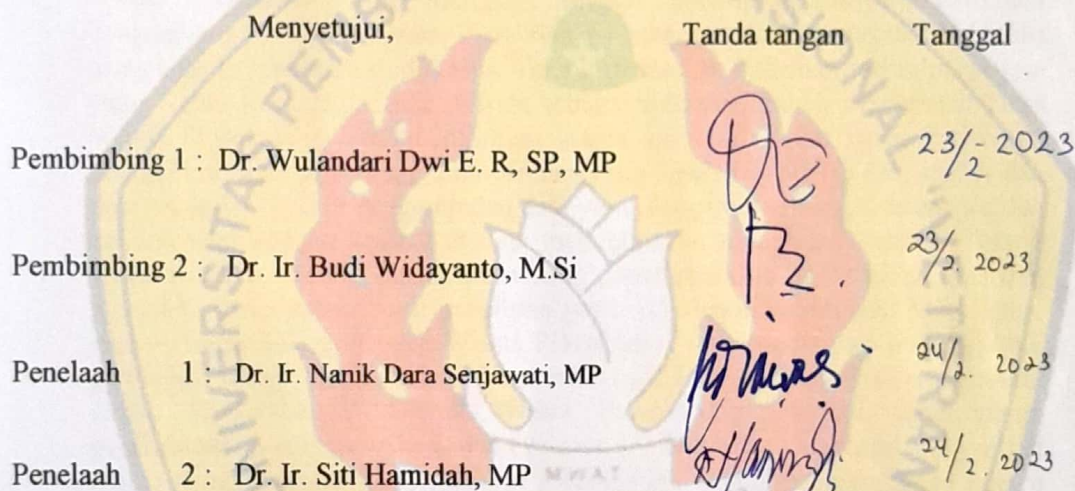 Menyetujui, Tanda tangan Tanggal
Pembimbing 1 : Dr. Wulandari Dwi E. R, SP, MP 23/2 - 2023
Pembimbing 2 : Dr. Ir. Budi Widayanto, M.Si 23/2. 2023
Penelaah 1 : Dr. Ir. Nanik Dara Senjawati, MP 24/2. 2023
Penelaah 2 : Dr. Ir. Siti Hamidah, MP 24/2. 2023
UNIVERSITAS